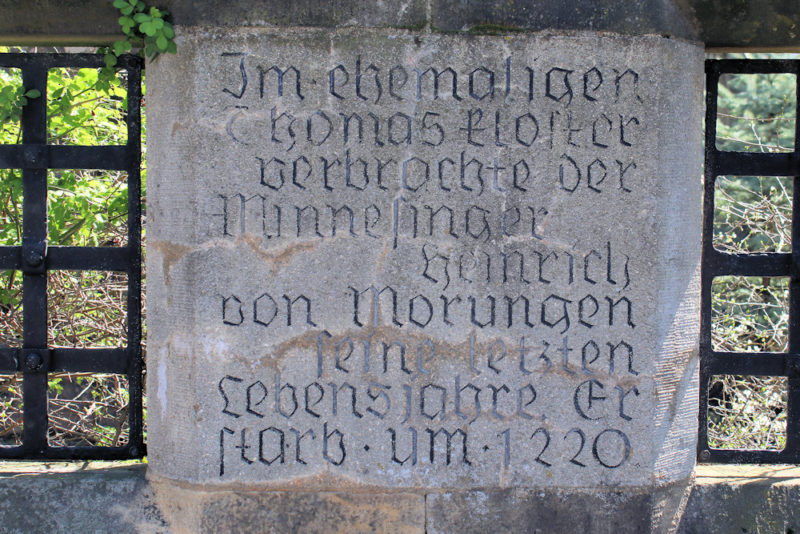 Im · ehemaligen
Thomaskloster
verbrachte der
Minnesinger
Heinrich
von Morungen
seine letzten
Lebensjahre. Er
starb · um · 1220